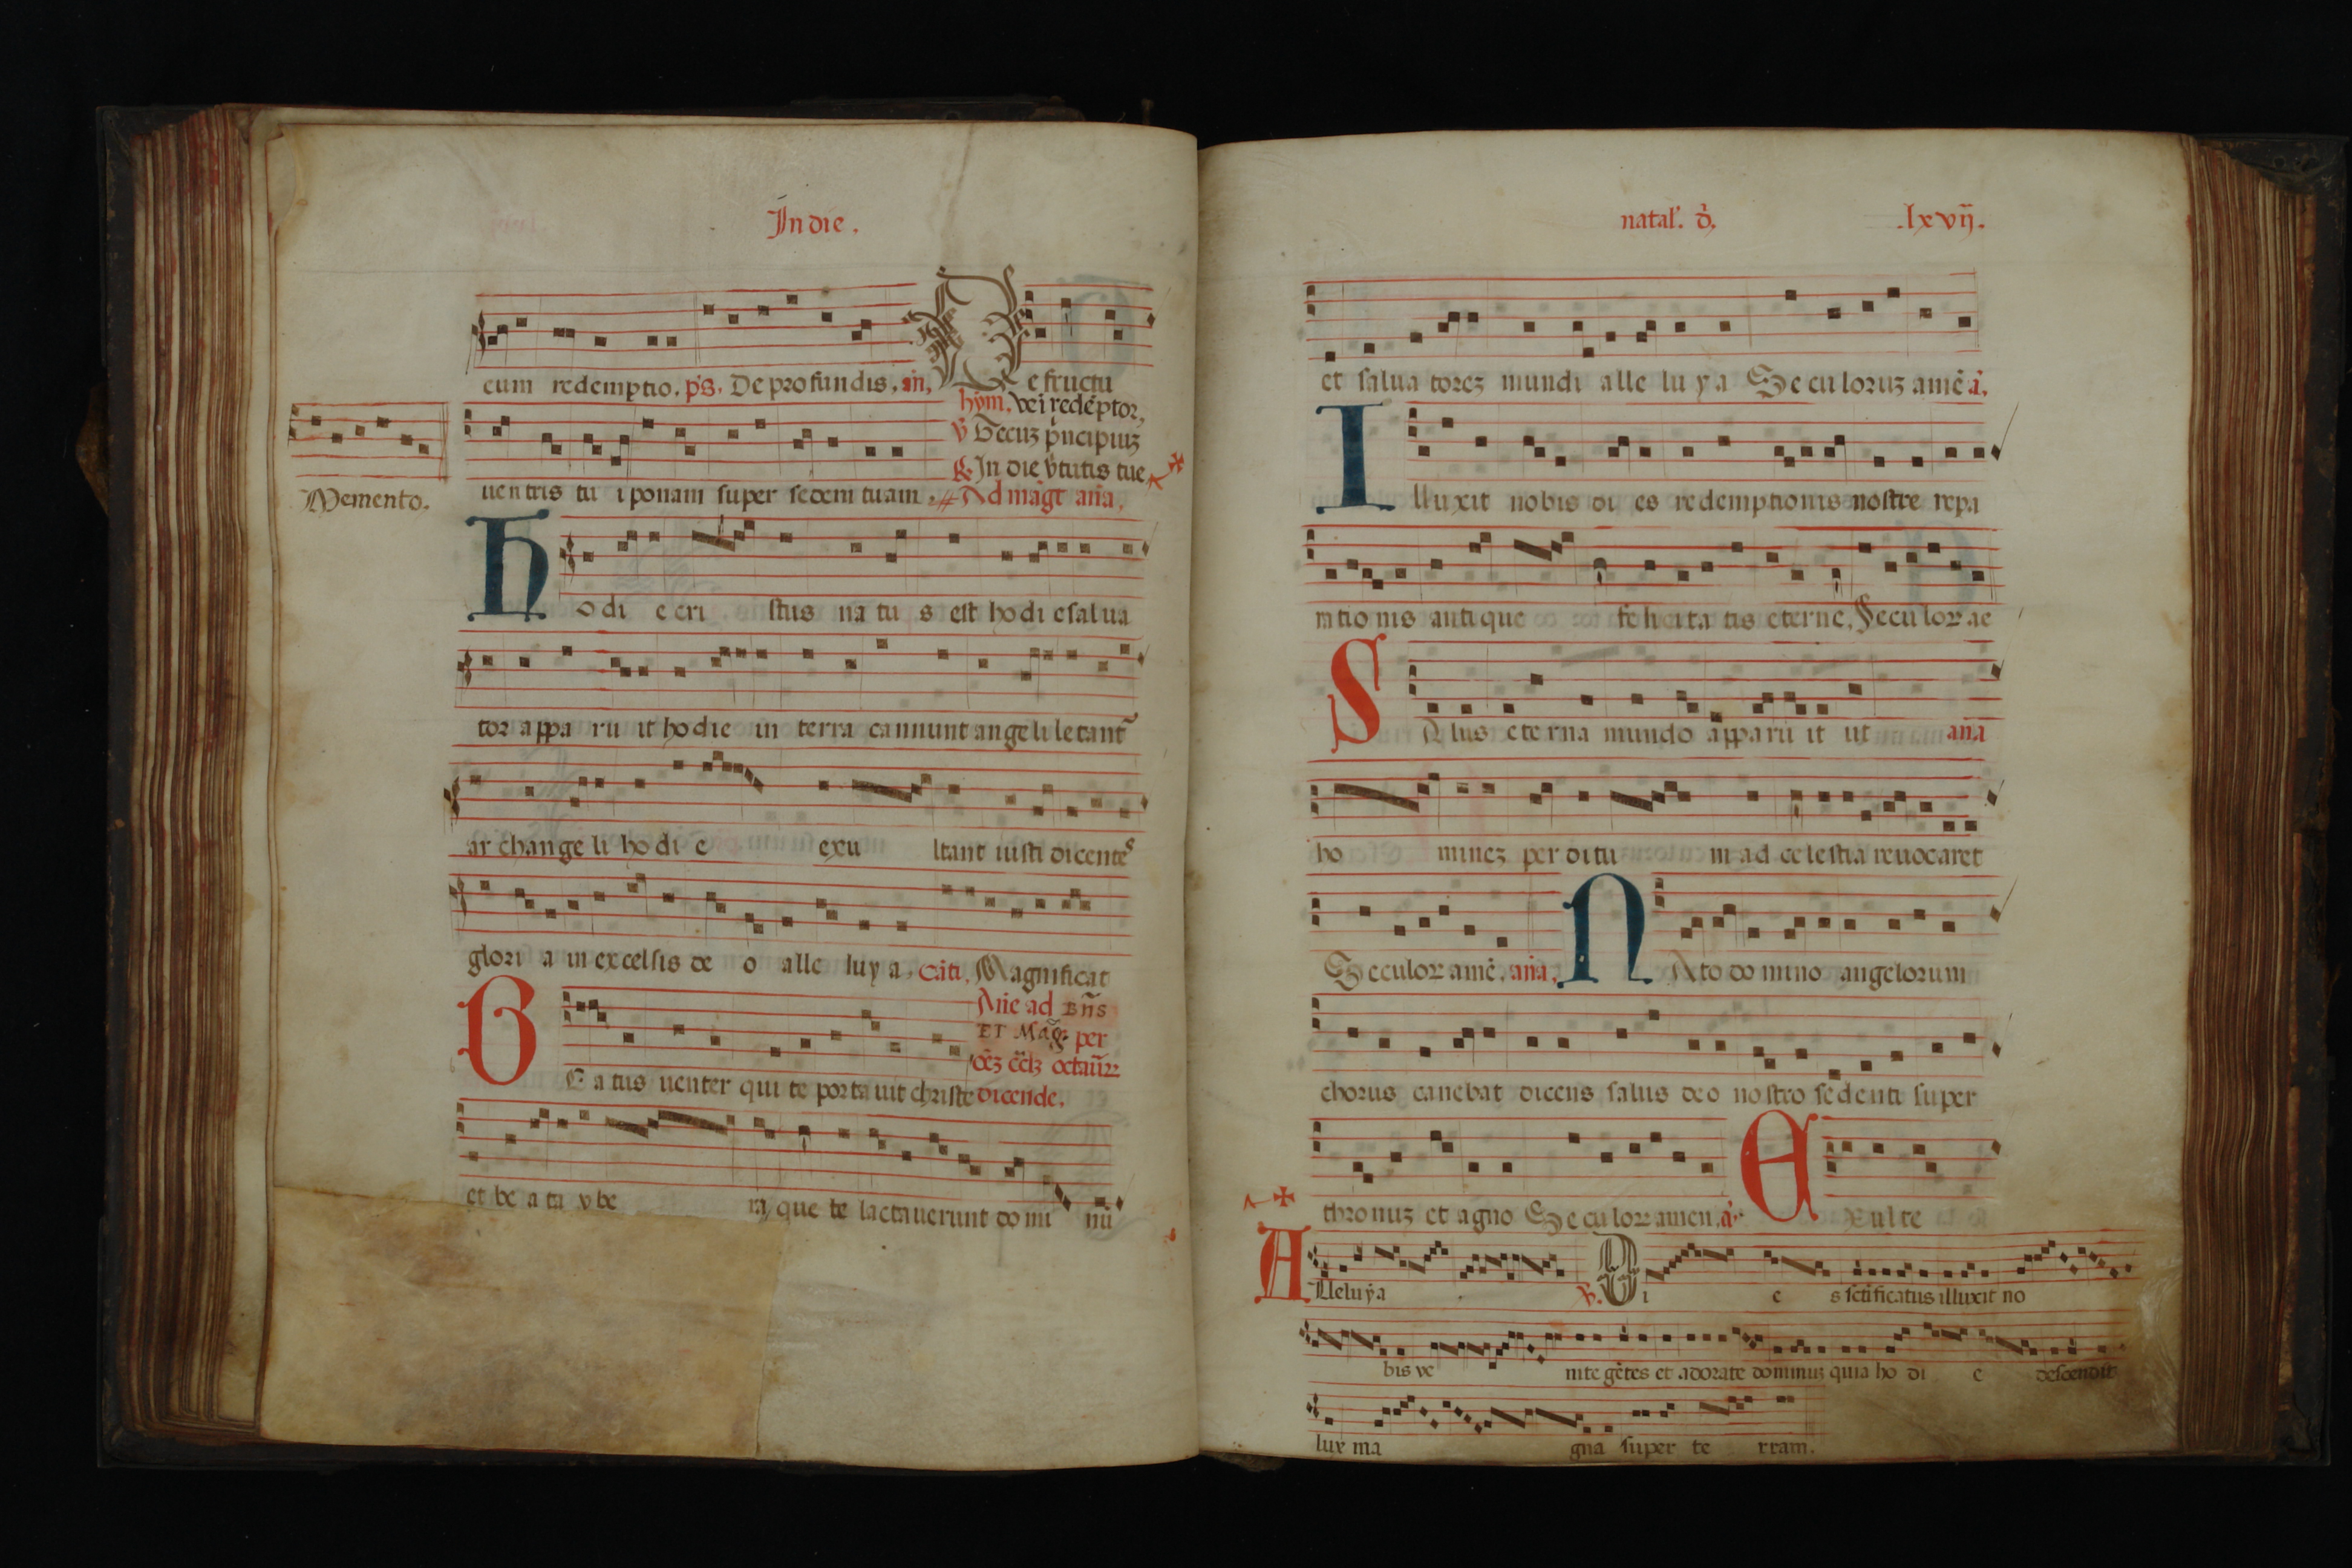 In die.
cum redemptio. ps. De profundis. an.
e fructu
hym. xei redẽptor.
Memento.
ventris tu i ponam super sedem tuam.
℣ Tecuz p̃ncipiuz
℟. In die v̄tutis tue
Ad magt ana.
H odi e cri stus na tu s est ho di e salua
tor appa ru it ho die in terra cannunt ange li letant
ar change li ho di e exu ltant iusti dicentes
glori a in excelsis de o alle luy a. Magnificat
Añe ad Bñs
ET Mag. per
octaũ
B E atus venter qui te porta uit christe dicende.
et be a ta vbe ra que te lactauerunt do mi nũ
natal'. d̃. .lxvij.
et salua torez mundi alle lu y a Se cu loruz amẽ a.
I lluxit nobis di es redemptionis nostre repa
ratio nis anti que fe lici ta tis eterne. Secu lor ae
S A lus eterna mundo apparu it ut ana
ho minez per ditu m ad ce lestia reuocaret
Seculor amẽ. ana. N Ato do mino angelorum
chorus canebat dicens salus deo nostro sedenti super
thronuz et agno Se cu lor amen. a. E Xul te
A lleluya ℣. Di e s sc̃tificatus illuxit no
bis ve nite gẽtes et adorate dominuz quia ho di e descendit
lux ma gna super te rram.